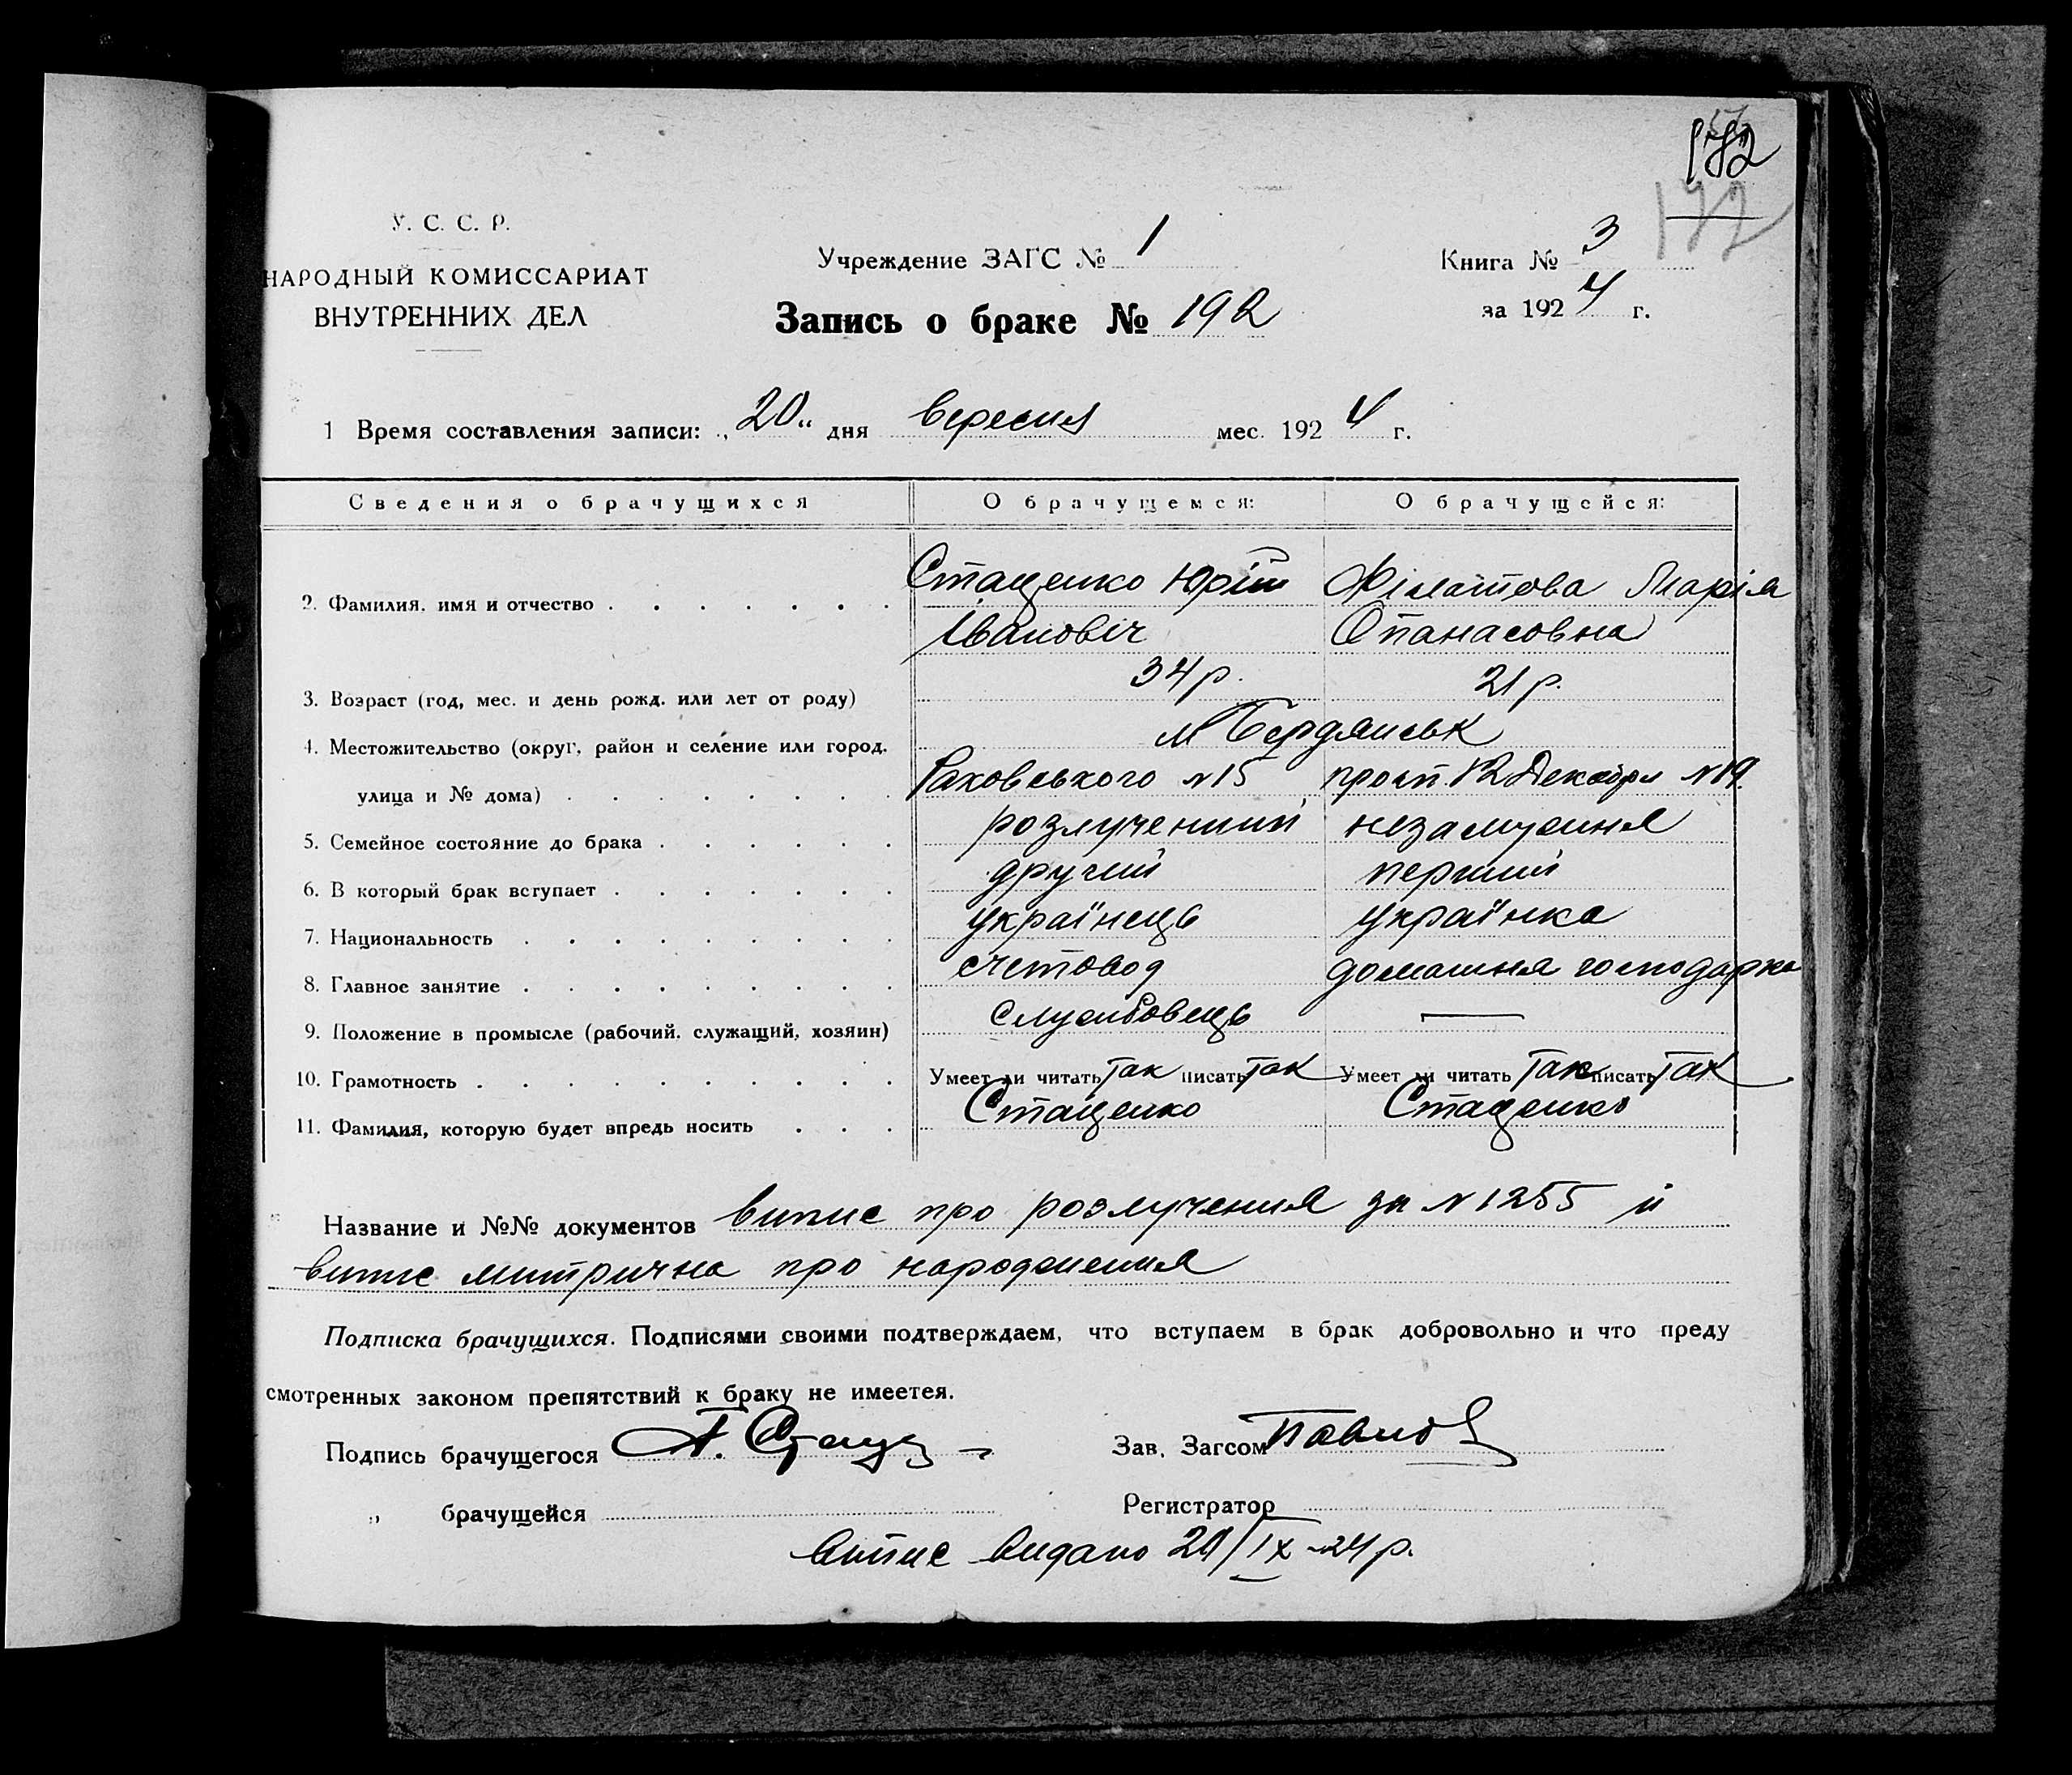 192
192
У. С. С. Р.
НАРОДНЫЙ КОМИССАРИАТ
ВНУТРЕННИХ ДЕЛ
Учреждение ЗАГС № 1
Книга № 3
Запись о браке № 192
за 1924 г.
1 Время составления записи: „20" дня вересня мес. 1924 г.
Сведения о брачущихся О брачущемся: О брачущейся:
2. Фамилия, имя и отчество Стаценко Юрій Філатова Марія
Іванович Опанасовна
3. Возраст (год, мес. и день рожд. или лет от роду) 34 р. 21 р.
4. Местожительство (округ, район и селение или город, м Бердянськ
улица и № дома) Раковського №15 просп. 12 Декабря №19.
5. Семейное состояние до брака розлучений незамужня
6. В который брак вступает другий перший
7. Национальность українець українка
8. Главное занятие счетовод домашня господарка
9. Положение в промысле (рабочий, служащий, хозяин) службовець —
10. Грамотность Умеет ли читать так писать так Умеет ли читать так писать так
11. Фамилия, которую будет впредь носить Стаценко Стаценко
Название и №№ документов випис про розлучення за №1255 й
випис митрична про народження
Подписка брачущихся. Подписями своими подтверждаем, что вступаем в брак добровольно и что преду
смотренных законом препятствий к браку не имеетея.
Подпись брачущегося Зав. Загсом Павлов
„ брачущейся Регистратор
Витис видано 20/IX-24 р.